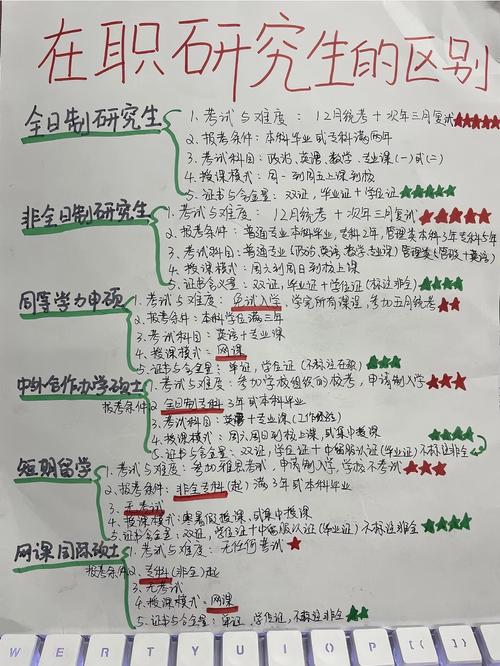 在职研究生的区别
全日制研究生
1. 考试与难度：12月统考 + 次年三月复试★★★★★
2. 报考条件：本科毕业或专科满两年
3. 考试科目：政治、英语、数学、专业课(一)或(二)
4. 授课模式：周一到周五上课到校
5. 证书与含金量：双证，毕业证+学位证★★★★★
非全日制研究生
1. 考试与难度：12月统考 + 次年三月复试★★★★★
2. 报考条件：普通专业本科毕业，专科2年，管理类本科3年专科5年
3. 考试科目：普通专业(政治、英语、数学专业课)管理类(管综+英语)
4. 授课模式：周六到周日到校上课
5. 证书含义量：双证，毕业证+学位证(标注非全)★★★★
同等学力申硕
1. 考试与难度：免试入学，学完所有课程，参加五月统考★★
2. 报考条件：本科学位满三年
3. 考试科目：英语+专业课
4. 授课模式：网课
5. 证书与含金量：单证，学位证(不标注在职)★★★
中外合作办学硕士
1. 考试与难度：参加学校组织的校考，申请制入学★★★
报考条件2. 全日制专科3年或本科毕业
3. 考试科目：英语+专业课(工作经验)
4. 授课模式：周六周日到校上课，或集中授课
5. 证书与含金量：双证，学位证+中留服认证(毕业证)不标注非全★★★★
短期留学
1. 考试与难度：参加雅思考试，申请制入学，学校不考试★★★
2. 报考条件：非全专科(起)满3年或本科毕业
3. 无考试
4. 授课模式：寒暑假授课，或集中授课
5. 证书含金量：双证，学位证+中留服认证(毕业证)不标注非全★★★★
网课国际硕士
1. 考试与难度：无任何考试★
报考条件2. 专科(非全)起
3. 无考试
4. 授课模式：网课
5. 证书与含金量：单证，学位证，不标注非全★★
W E R T Y U I O P [ { ] }